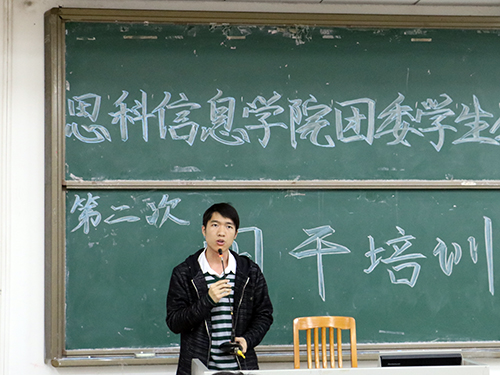 思科信息学院团委学生
第二次 干培训